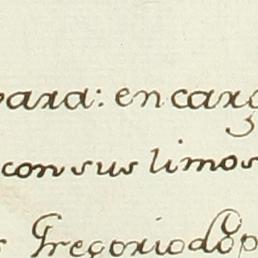 para: encarg
con sus limos
s Gregorio Lop